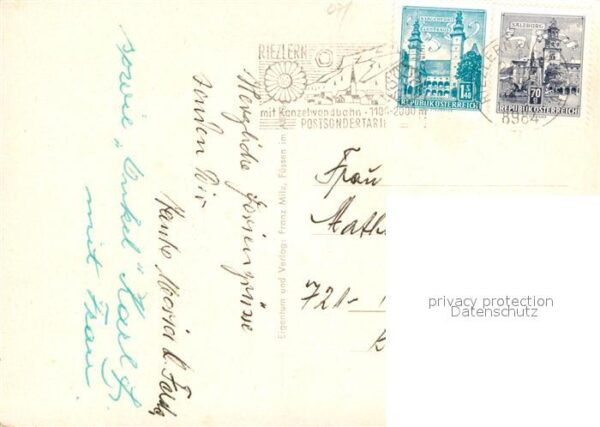 KLAGENFURT
LANDHAUS
1 S 40
REPUBLIK ÖSTERREICH
SALZBURG
70
REPUBLIK ÖSTERREICH
RIEZLERN
mit Kanzelwandbahn - 1100-2000 m
POSTSONDERTARIF
8984
Herzliche Feriengrüsse
senden Dir
Tante Maria &
sowie "Onkel" Karl F.
mit Frau.
Eigentum und Verlag: Franz Milz, Füssen im
Frau
Math
721-
privacy protection
Datenschutz